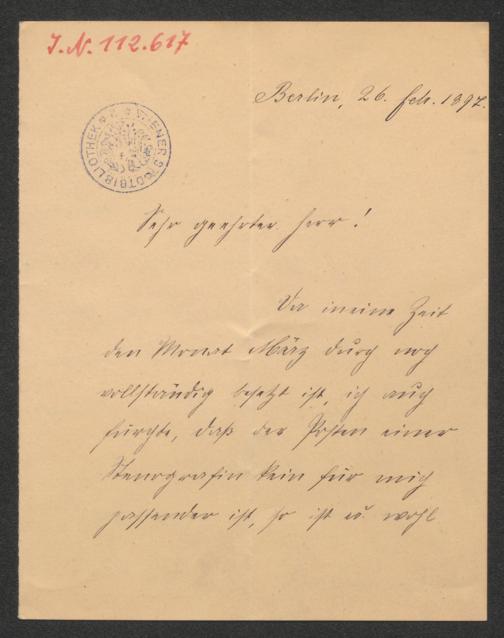 J.N. 112.617
WIENER STADTBIBLIOTHEK
Berlin, 26. Feb. 1897.
Sehr geehrter Herr!
Da meine Zeit
den Monat März durch noch
vollständig besetzt ist, ich auch
fürchte, daß der Posten einer
Stenografin kein für mich
passender ist, so ist es wohl